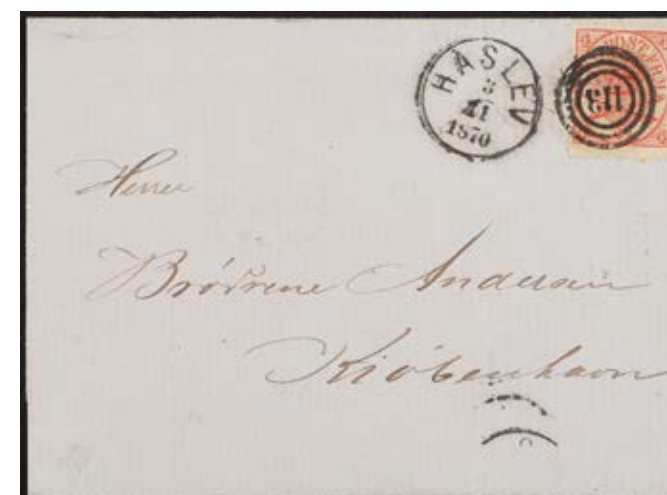 HASLEV
3
11
1870
113
4 POST.FRM
Herrer
Brödrene Andersen
Kiöbenhavn